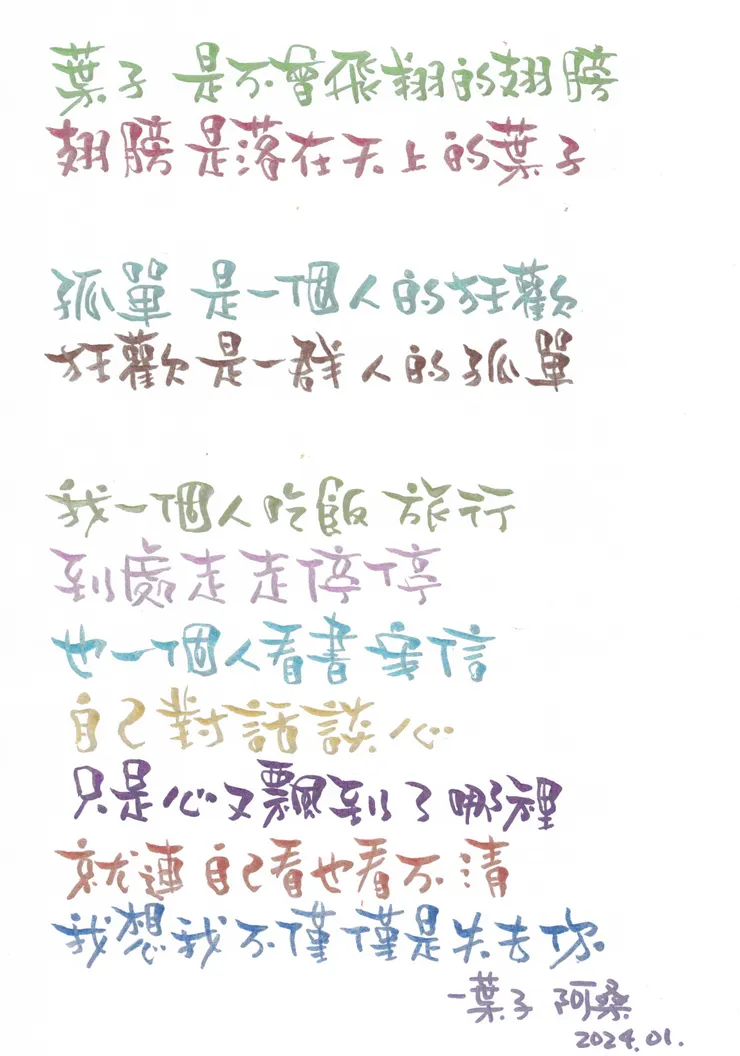 葉子 是不會飛翔的翅膀
翅膀是落在天上的葉子
孤單 是一個人的狂歡
狂歡是一群人的孤單
我一個人吃飯 旅行
到處走走停停
也一個人看書寫信
自己對話談心
只是心又飄到了哪裡
就連自己看也看不清
我想我不僅僅是失去你
－葉子 阿桑
2024.01.